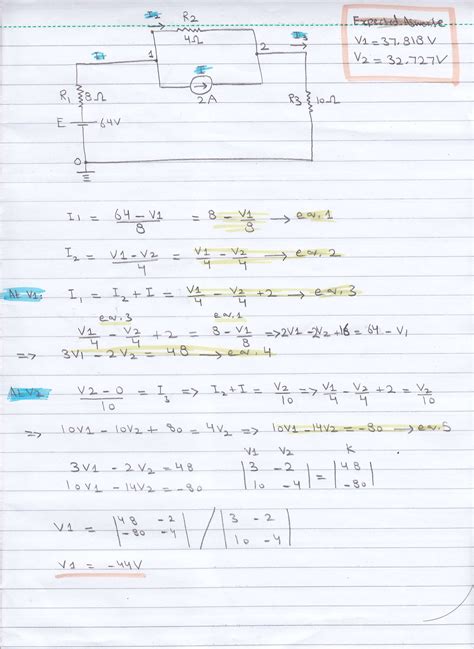 Expected Answers
V1 = 37.818 V
V2 = 32.727V
I1
I2
R2
4Ω
1
2
I3
I
2A
R1
8Ω
R3
10Ω
E
64V
0
I1 = 64 - V1 / 8 = 8 - V1/8 → eq. 1
I2 = V1 - V2 / 4 = V1/4 - V2/4 → eq. 2
At V1: I1 = I2 + I = V1/4 - V2/4 + 2 → eq. 3
eq. 3 eq. 1
V1/4 - V2/4 + 2 = 8 - V1/8 => 2V1 - 2V2 + 16 = 64 - V1
=> 3V1 - 2V2 = 48 → eq. 4
At V2 V2 - 0 / 10 = I3 => I2 + I = V2/10 => V1/4 - V2/4 + 2 = V2/10
=> 10V1 - 10V2 + 80 = 4V2 => 10V1 - 14V2 = -80 → eq. 5
V1 V2 K
3V1 - 2V2 = 48 |3 -2| = |48|
10V1 - 14V2 = -80 |10 -4| |-80|
V1 = |48 -2| / |3 -2|
|-80 -4| |10 -4|
V1 = -44V